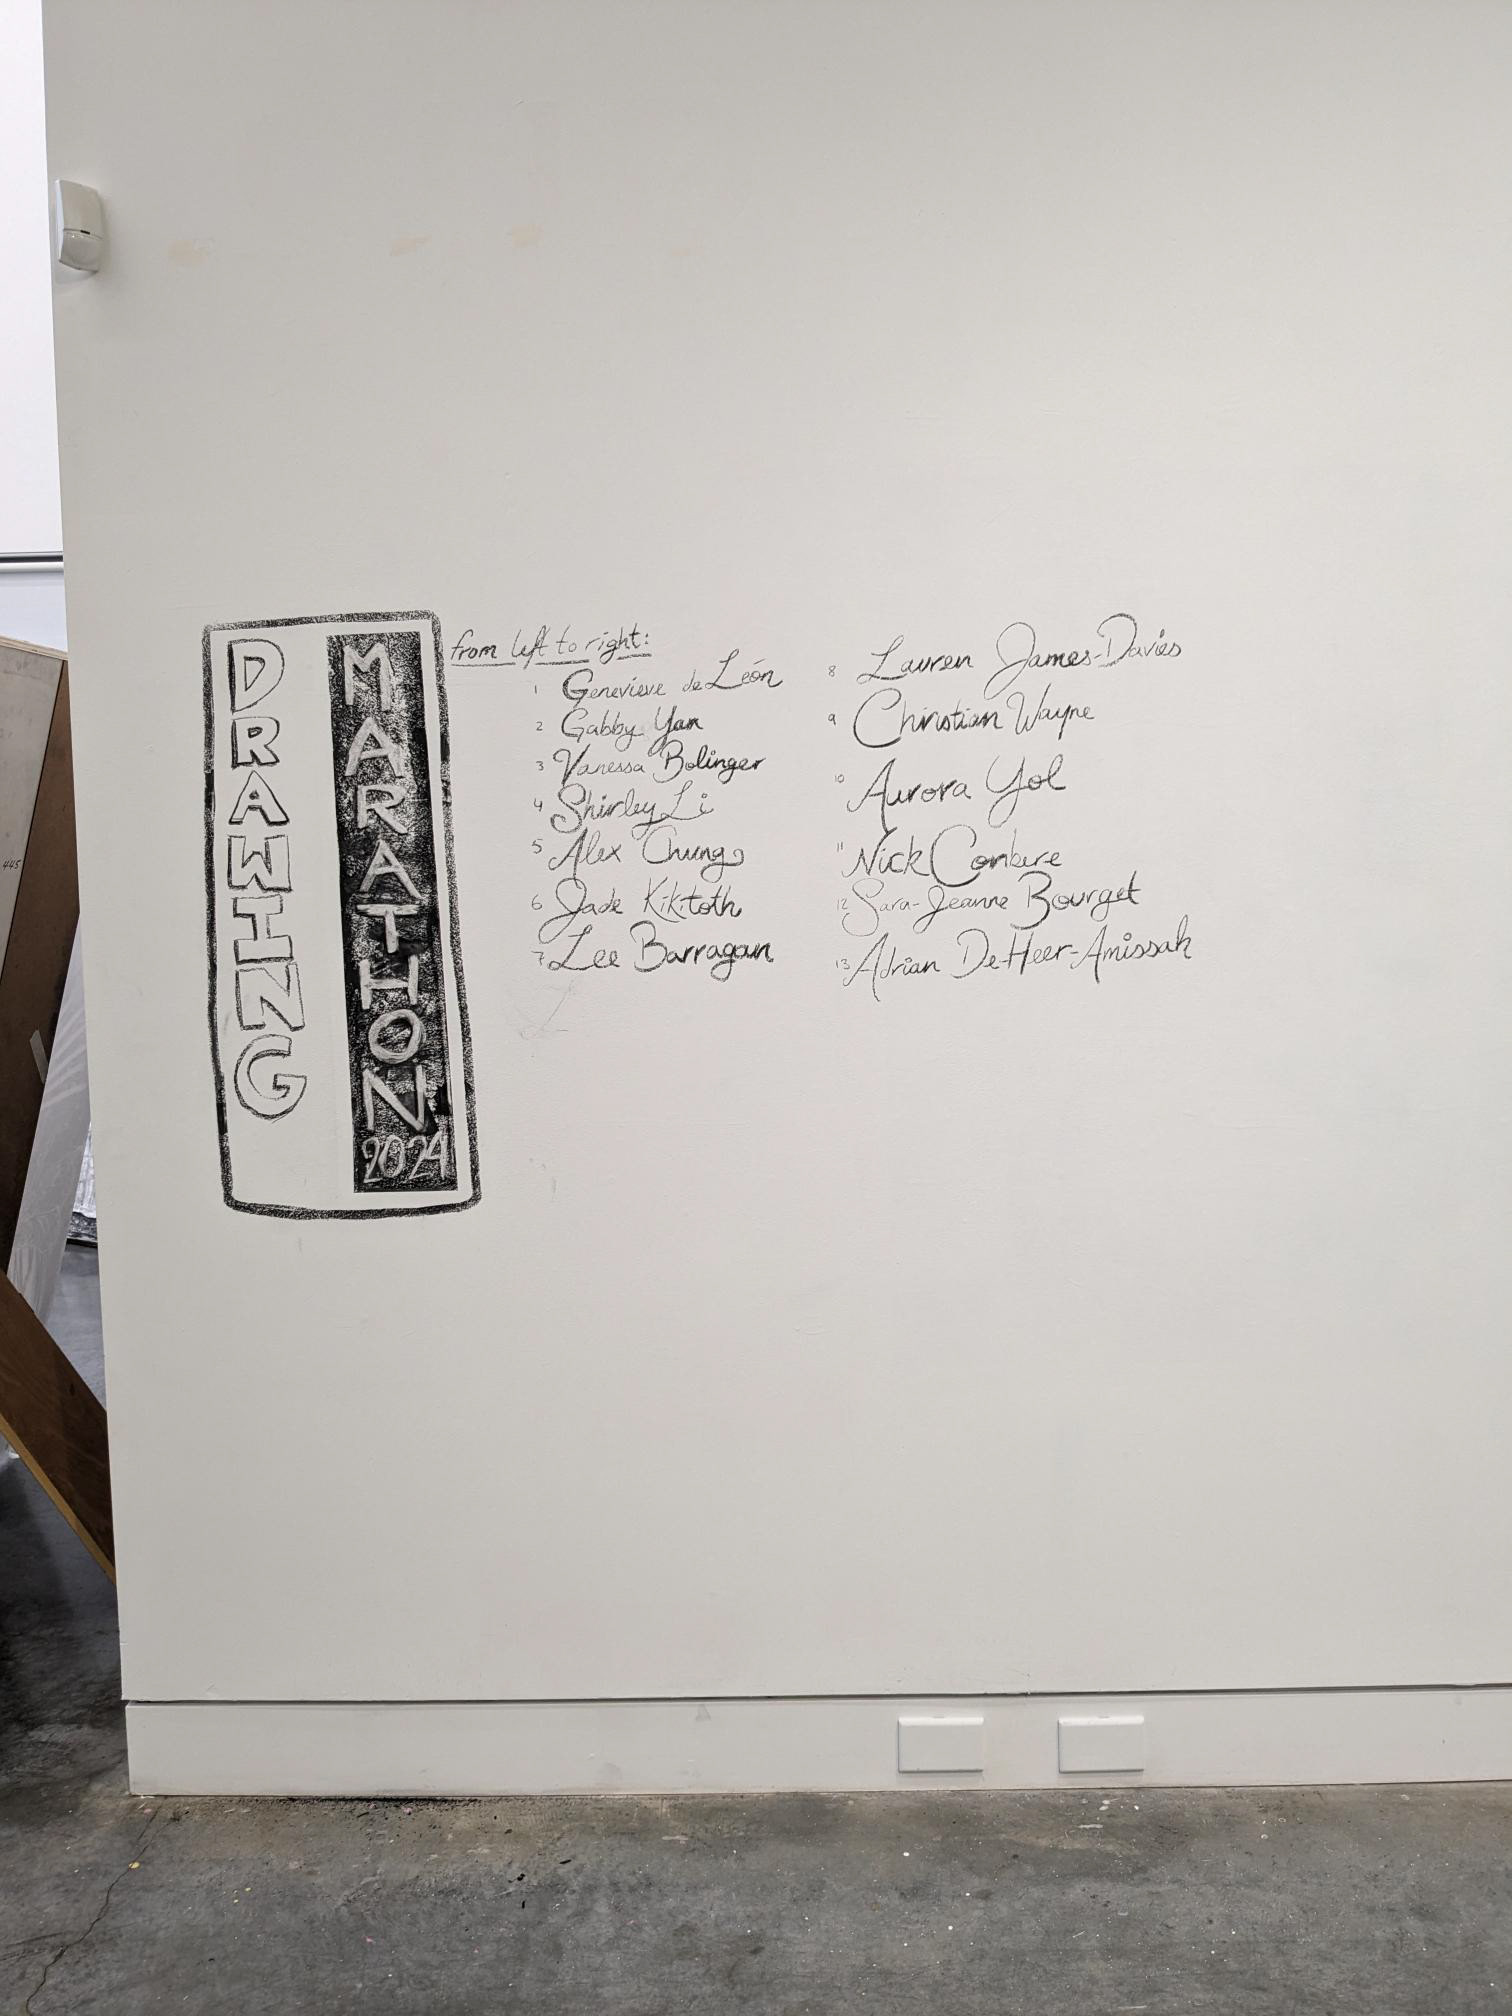 DRAWING
MARATHON
2024
from left to right:
1 Genevieve de León
2 Gabby Yan
3 Vanessa Bolinger
4 Shirley Li
5 Alex Chung
6 Jade Kikitoth
7 Lee Barragan
8 Lauren James-Davies
9 Christian Wayne
10 Aurora Yol
11 Nick Conbere
12 Sara-Jeanne Bourget
13 Adrian De-Heer-Amissah
445